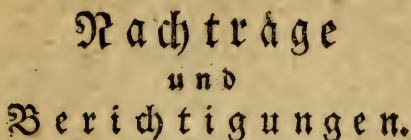 Nachträge
und
Berichtigungen.